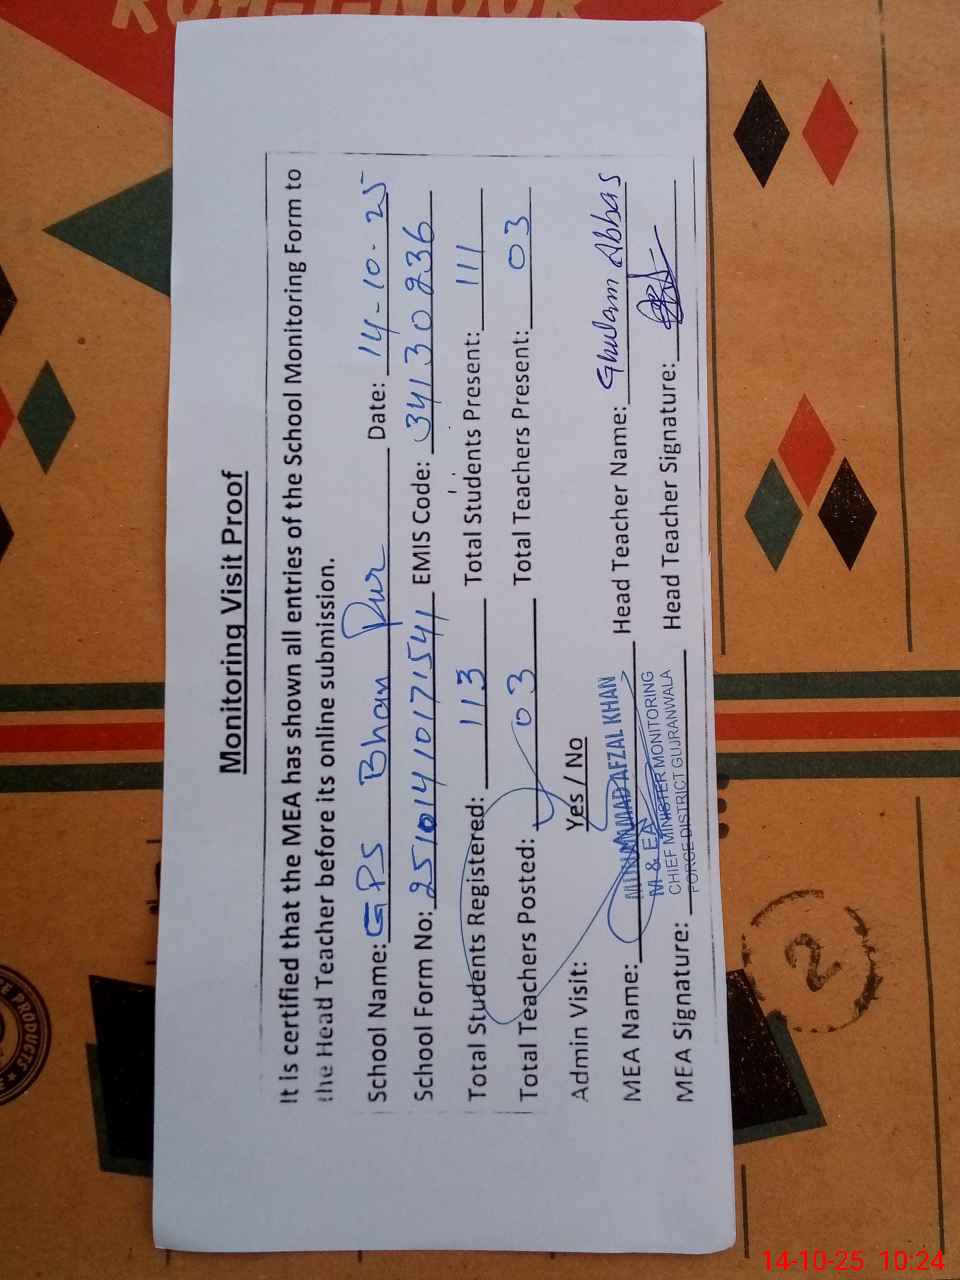 KOH-I-NOOR
Monitoring Visit Proof
It is certified that the MEA has shown all entries of the School Monitoring Form to
the Head Teacher before its online submission.
School Name: GPS Bhan Pur Date: 14-10-25
School Form No: 25101410171541 EMIS Code: 34130236
Total Students Registered: 113 Total Students Present: 111
Total Teachers Posted: 03 Total Teachers Present: 03
Admin Visit: Yes / No
MEA Name: MUHAMMAD AFZAL KHAN Head Teacher Name: Ghulam Abbas
M & EA
CHIEF MINISTER MONITORING
FORCE DISTRICT GUJRANWALA
MEA Signature: Head Teacher Signature:
PRODUCTS
2
14-10-25 10:24